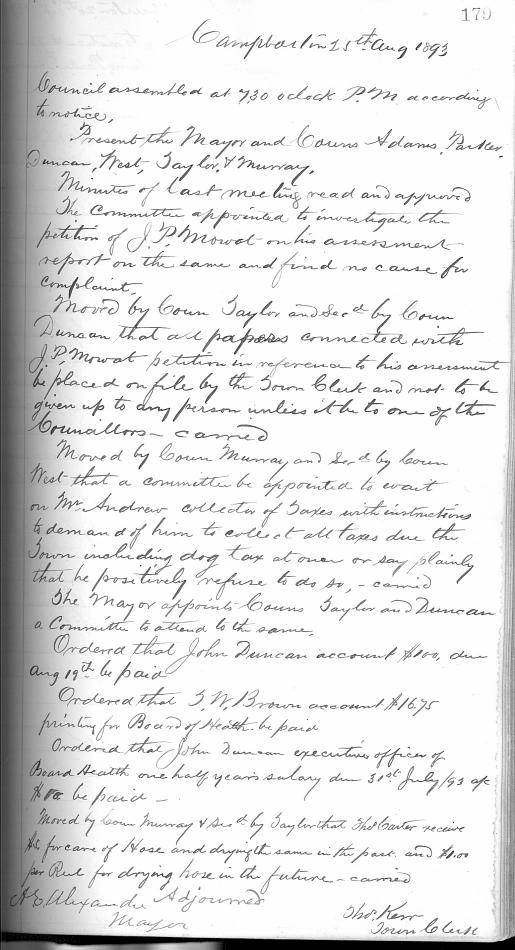 179
Campbellton 25th Aug 1893
Council assembled at 7.30 oclock P.M. according
to notice,
Present the Mayor and Couns Adams, Parker,
Duncan, West, Taylor, & Murray,
Minutes of last meeting read and approved
The committee appointed to investigate the
petition of J. P. Mowat on his assessment
report on the same and find no cause for
complaint,
Moved by Coun Taylor and Secd by Coun
Duncan that all papers connected with
J P Mowat petition in reference to his assessment
be placed on file by the Town Clerk and not to be
given up to any person unless it be to one of the
Councillors - carried
Moved by Coun Murray and Secd by Coun
West that a committee be appointed to wait
on Mr. Andrew collector of Taxes with instructions
to demand of him to collect all taxes due the
Town including dog tax at once or say plainly
that he positively refuse to do so, - carried
The Mayor appoints Couns Taylor and Duncan
a Committee to attend to the same,
Ordered that John Duncan account due
Aug 19th be paid
Ordered that T. W. Brown account $16.75
printing for Board of Heath be paid
Ordered that John Duncan executive officer of
Board Health one half years salary due 31st July/93
be paid -
Moved by Coun Murray & Secd by Taylor that Thos Carter receive
for care of Hose and drying the same in the past and $1.00
per Reel for drying hose in the future - carried
A E Alexander Adjourned
Mayor
Thos. Kerr
Town Clerk